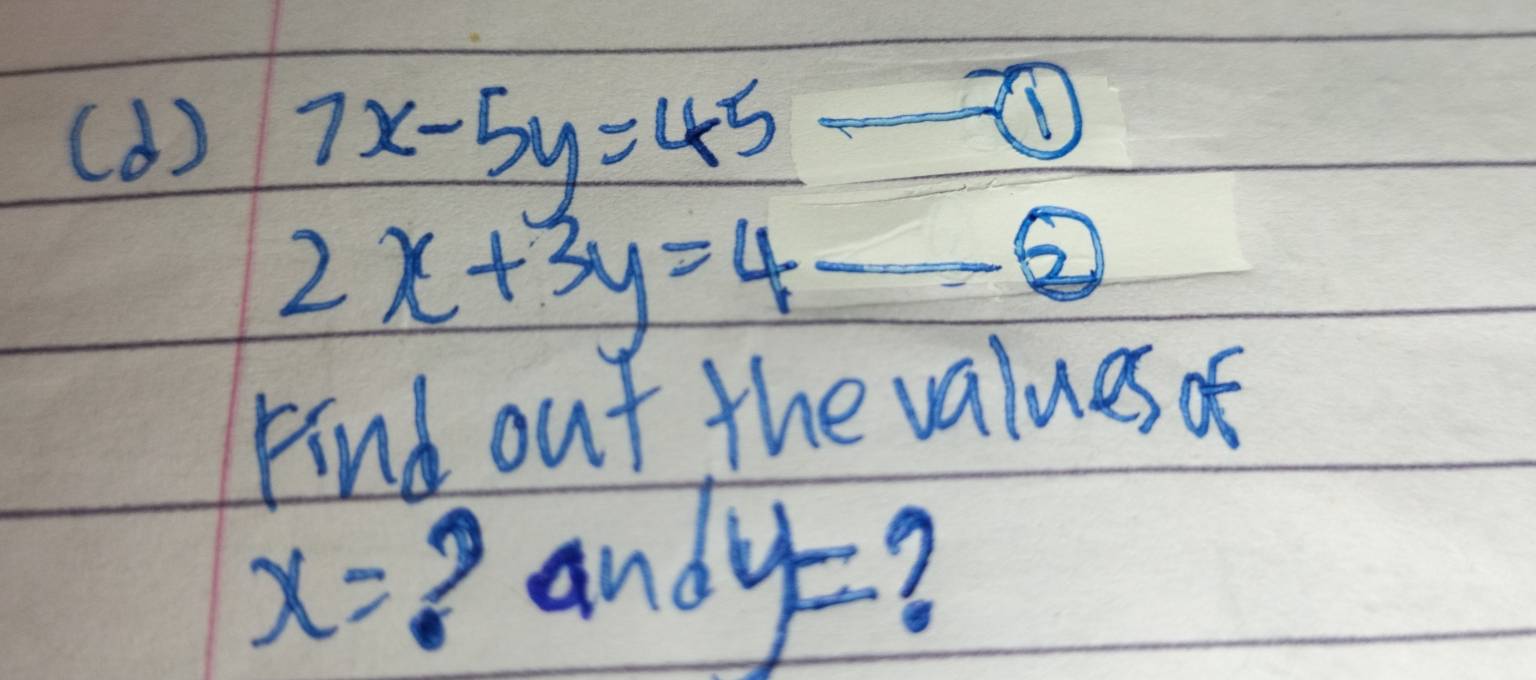 (d) 7x-5y=45 —— ①
2x+3y=4 —— ②
Find out the values of
x=? and y=?